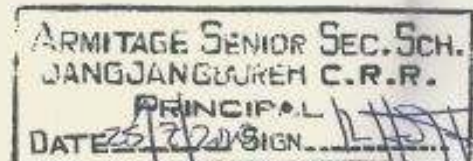 ARMITAGE SENIOR SEC. SCH.
JANGJANGBUREH C.R.R.
PRINCIPAL
DATE SIGN